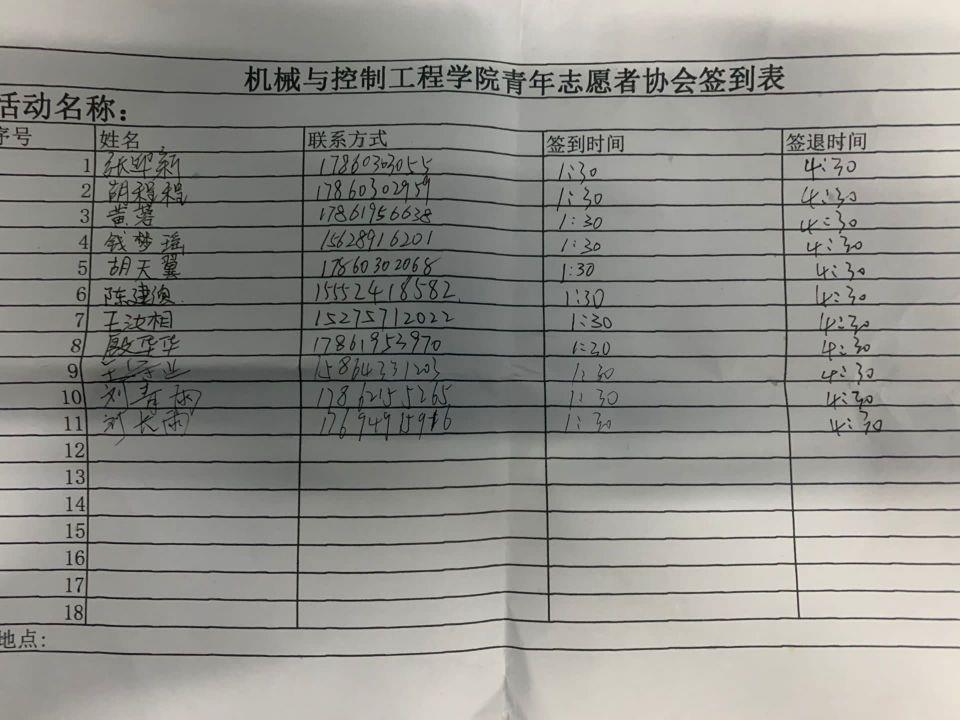 机械与控制工程学院青年志愿者协会签到表
活动名称：
序号 姓名 联系方式 签到时间 签退时间
1 张迎新 17860303055 1:30 4:30
2 胡程程 17860302959 1:30 4:30
3 黄蓉 17861956638 1:30 4:30
4 钱梦瑶 15628916201 1:30 4:30
5 胡天翼 17860302068 1:30 4:30
6 陈建 15552418582 1:30 4:30
7 王汝相 15275712022 1:30 4:30
8 殷华华 17861953970 1:30 4:30
9 15864331203 1:30 4:30
10 刘春雨 17862155265 1:30 4:30
11 刘长雨 1:30 4:30
12
13
14
15
16
17
18
地点: